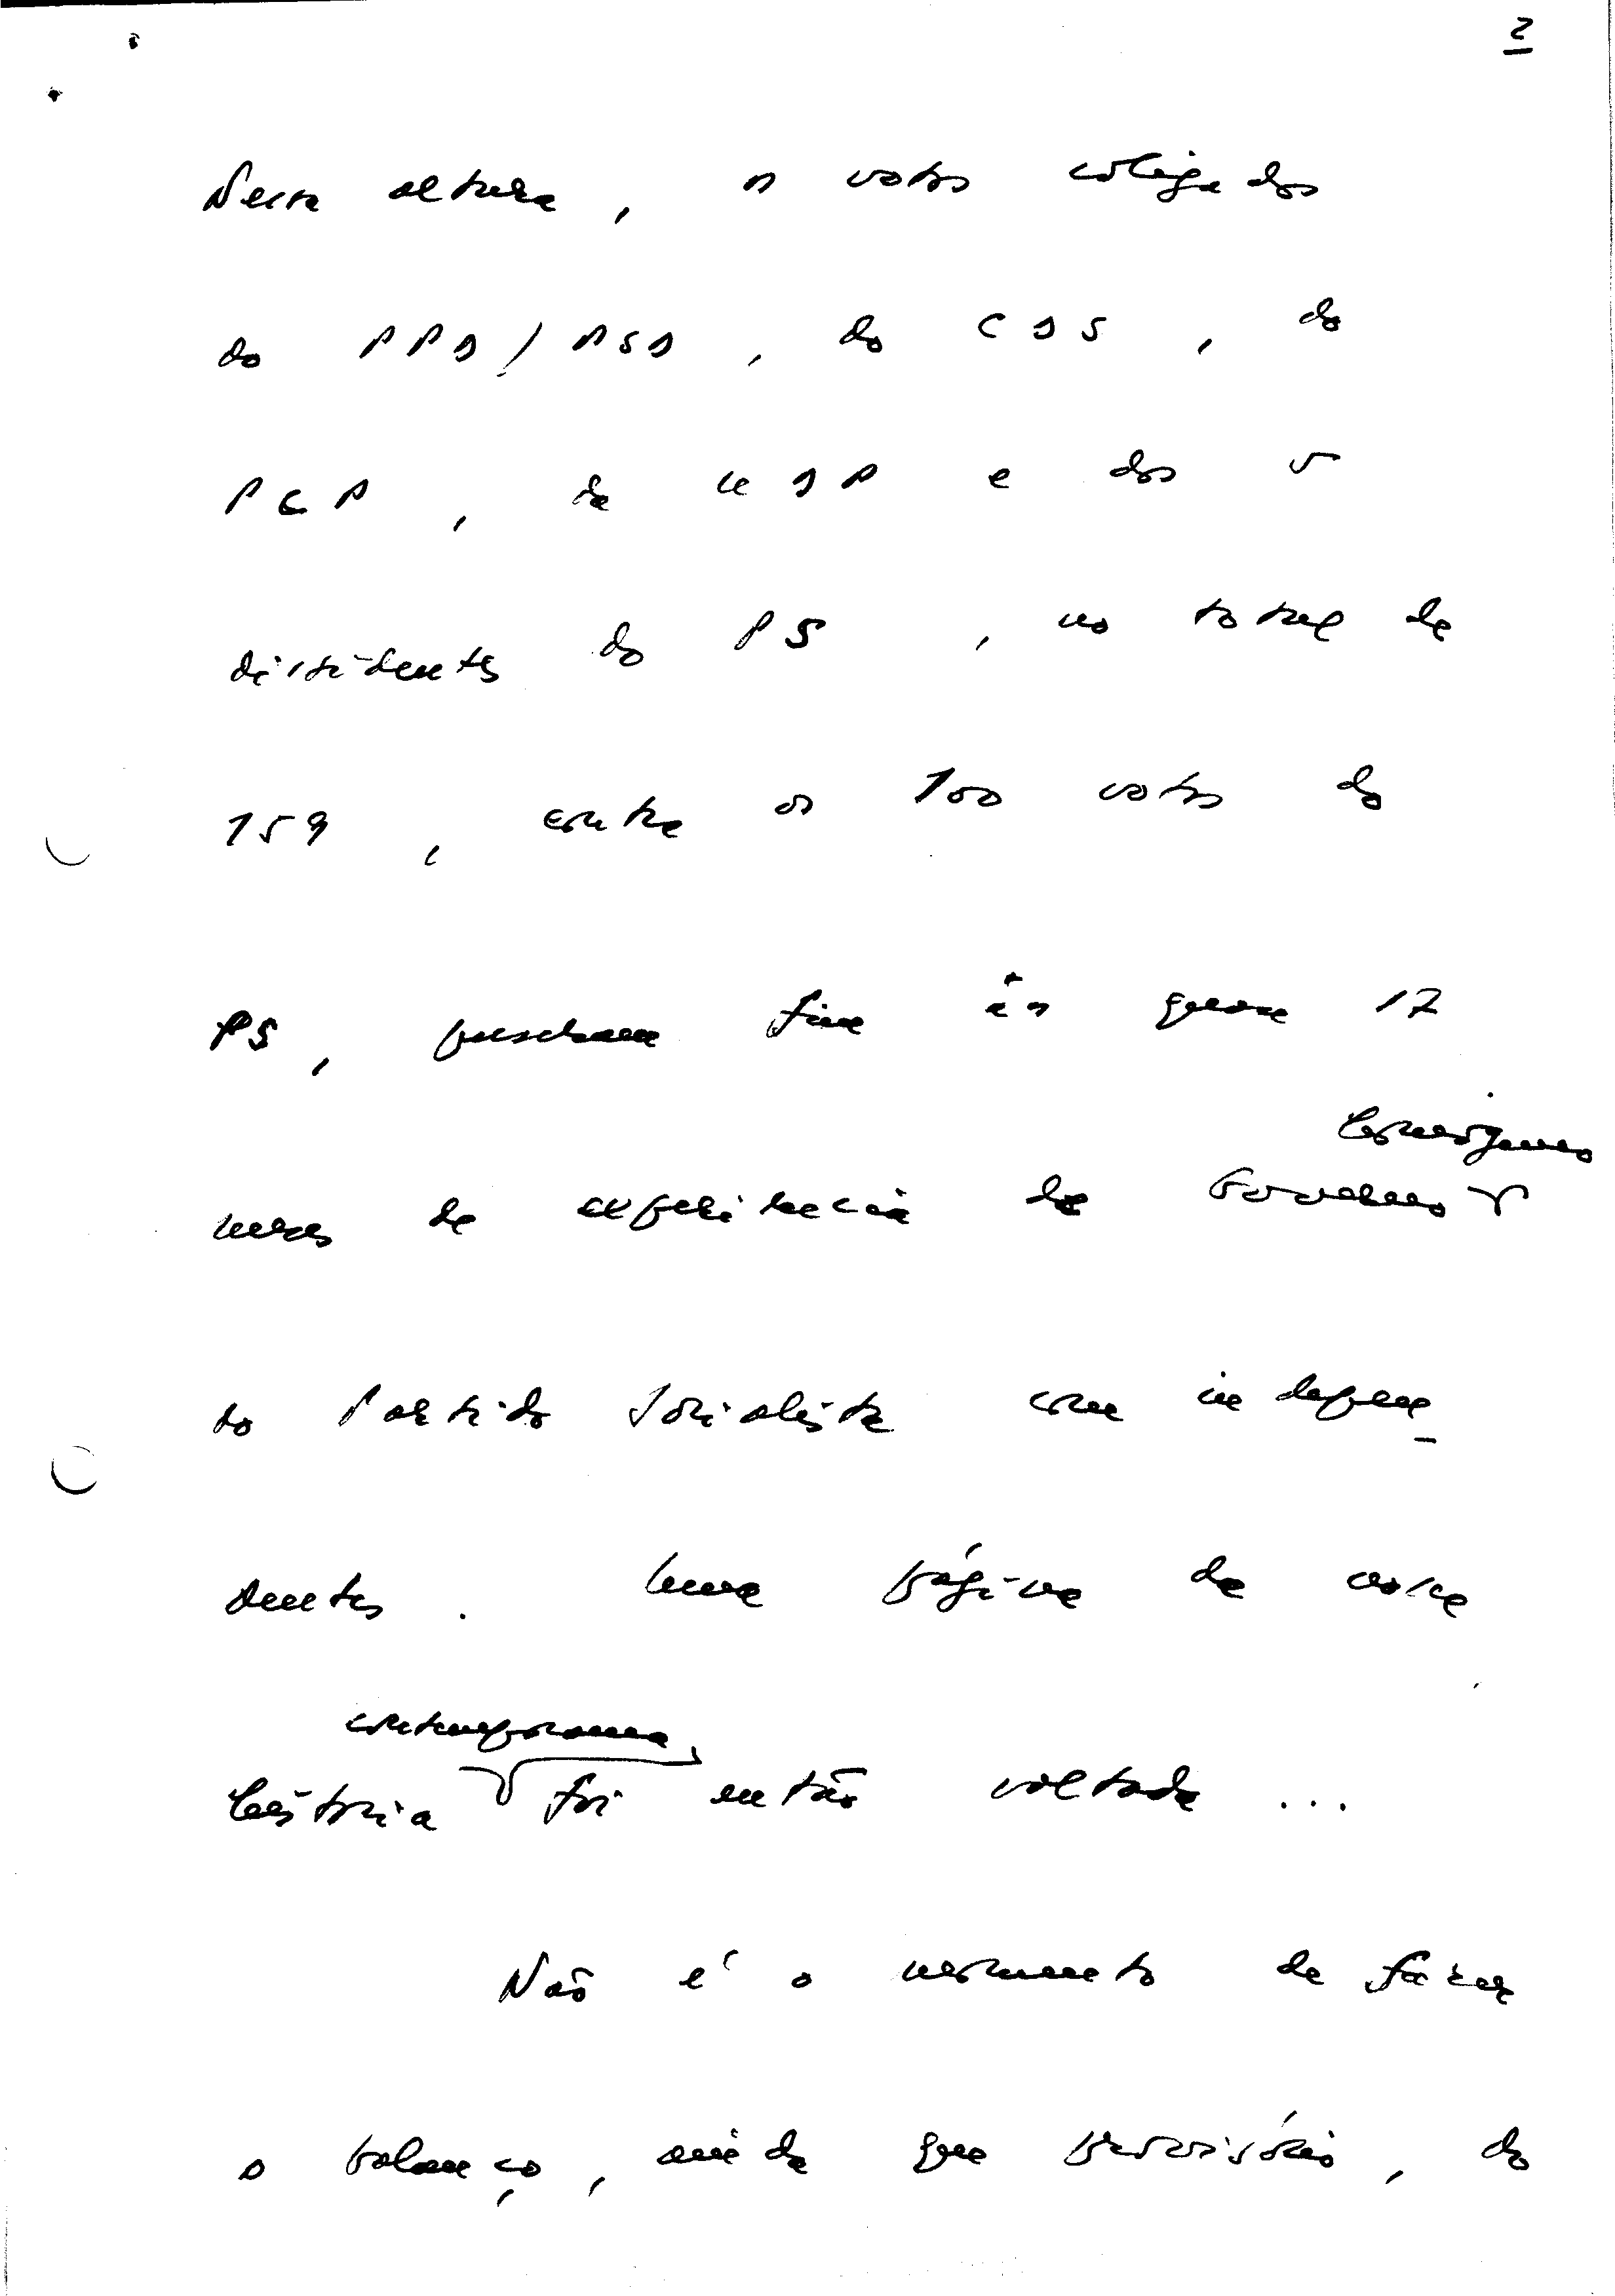 2
Nessa altura, os votos coligados
do PPD/PSD, do CDS, do
PCP, da UDP e dos 5
dissidentes do PS, no total de
159, contra os 100 votos do
PS, puseram fim aos quase 17
homogéneo
meses de experiência de Governo
do Partido Socialista com indepen_
dentes. Uma página da nossa
contemporânea
história foi então voltada...
Não é o momento de fazer
o balanço, ainda que provisório, do